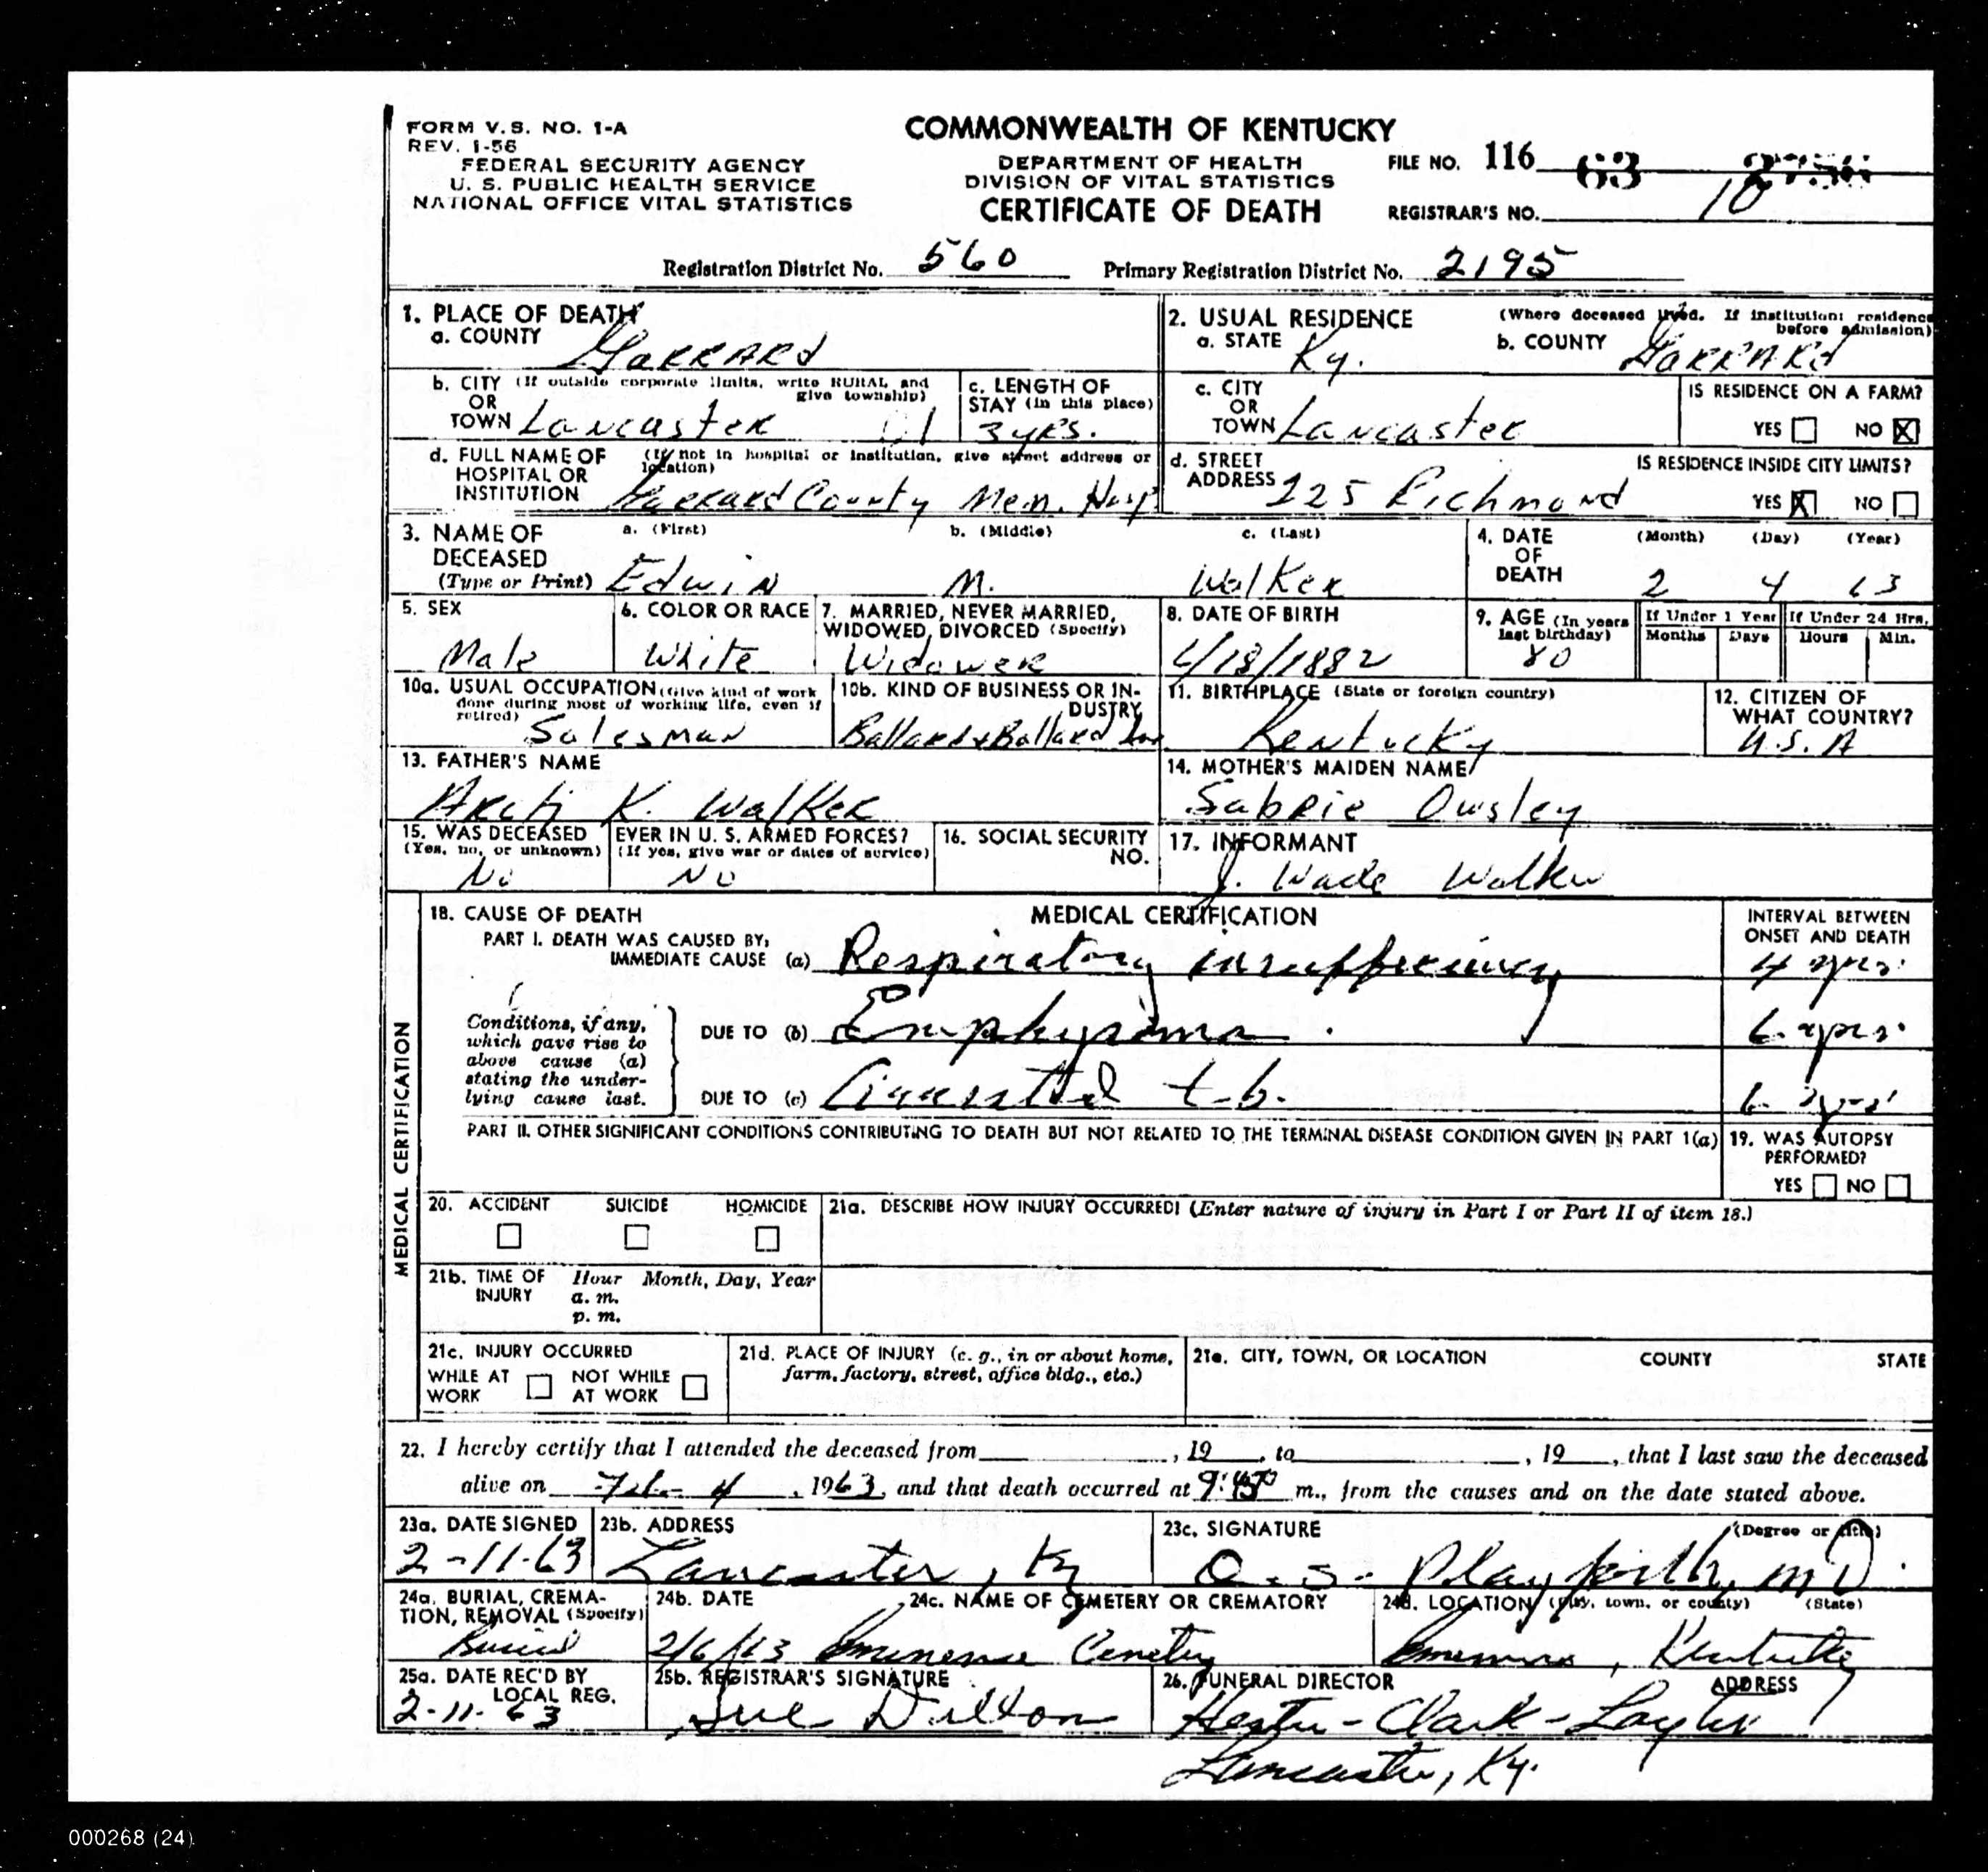 FORM V. S. NO. 1-A
REV. 1-56
FEDERAL SECURITY AGENCY
U. S. PUBLIC HEALTH SERVICE
NATIONAL OFFICE VITAL STATISTICS
COMMONWEALTH OF KENTUCKY
DEPARTMENT OF HEALTH
DIVISION OF VITAL STATISTICS
CERTIFICATE OF DEATH
FILE NO. 116 63
REGISTRAR'S NO. 10
Registration District No. 560 Primary Registration District No. 2195
1. PLACE OF DEATH
a. COUNTY Garrard
b. CITY (If outside corporate limits, write RURAL and give township)
OR
TOWN Lancaster 01
c. LENGTH OF STAY (in this place)
3 yrs.
d. FULL NAME OF HOSPITAL OR INSTITUTION (If not in hospital or institution, give street address or location)
Garrard County Mem. Hosp
2. USUAL RESIDENCE (Where deceased lived. If institution: residence before admission)
a. STATE Ky. b. COUNTY Garrard
c. CITY OR TOWN Lancaster
IS RESIDENCE ON A FARM?
YES NO X
d. STREET ADDRESS 225 Richmond
IS RESIDENCE INSIDE CITY LIMITS?
YES X NO
3. NAME OF DECEASED (Type or Print)
a. (First) b. (Middle) c. (Last)
Edwin M. Walker
4. DATE OF DEATH (Month) (Day) (Year)
2 4 63
5. SEX
Male
6. COLOR OR RACE
White
7. MARRIED, NEVER MARRIED, WIDOWED, DIVORCED (Specify)
Widower
8. DATE OF BIRTH
6/18/1882
9. AGE (In years last birthday)
80
If Under 1 Year If Under 24 Hrs.
Months Days Hours Min.
10a. USUAL OCCUPATION (Give kind of work done during most of working life, even if retired)
Salesman
10b. KIND OF BUSINESS OR INDUSTRY
Ballard & Ballard Inc
11. BIRTHPLACE (State or foreign country)
Kentucky
12. CITIZEN OF WHAT COUNTRY?
U.S.A
13. FATHER'S NAME
K. Walker
14. MOTHER'S MAIDEN NAME
Sabrie Owsley
15. WAS DECEASED EVER IN U. S. ARMED FORCES?
(Yes, no, or unknown) (If yes, give war or dates of service)
No No
16. SOCIAL SECURITY NO.
17. INFORMANT
J. Wade Walker
MEDICAL CERTIFICATION
18. CAUSE OF DEATH MEDICAL CERTIFICATION
INTERVAL BETWEEN ONSET AND DEATH
PART I. DEATH WAS CAUSED BY:
IMMEDIATE CAUSE (a) Respiratory insufficiency 4 yrs.
Conditions, if any, which gave rise to above cause (a) stating the underlying cause last.
DUE TO (b) Emphysema. 6 yrs.
DUE TO (c) Arrested t.b. 6 yrs
PART II. OTHER SIGNIFICANT CONDITIONS CONTRIBUTING TO DEATH BUT NOT RELATED TO THE TERMINAL DISEASE CONDITION GIVEN IN PART 1(a)
19. WAS AUTOPSY PERFORMED?
YES NO
20. ACCIDENT SUICIDE HOMICIDE
21a. DESCRIBE HOW INJURY OCCURRED! (Enter nature of injury in Part I or Part II of item 18.)
21b. TIME OF INJURY Hour Month, Day, Year
a. m.
p. m.
21c. INJURY OCCURRED
WHILE AT WORK NOT WHILE AT WORK
21d. PLACE OF INJURY (e. g., in or about home, farm, factory, street, office bldg., etc.)
21e. CITY, TOWN, OR LOCATION COUNTY STATE
22. I hereby certify that I attended the deceased from , 19 , to , 19 , that I last saw the deceased
alive on Feb 4 , 1963, and that death occurred at m., from the causes and on the date stated above.
23a. DATE SIGNED
2-11-63
23b. ADDRESS
Lancaster, Ky
23c. SIGNATURE (Degree or title)
O. S. Playforth, MD.
24a. BURIAL, CREMATION, REMOVAL (Specify)
Burial
24b. DATE
2/6/63
24c. NAME OF CEMETERY OR CREMATORY
Eminence Cemetery
24d. LOCATION (City, town, or county) (State)
Eminence, Kentucky
25a. DATE REC'D BY LOCAL REG.
2-11-63
25b. REGISTRAR'S SIGNATURE
Sue Dillon
26. FUNERAL DIRECTOR ADDRESS
Clark
Lancaster, Ky.
000268 (24)